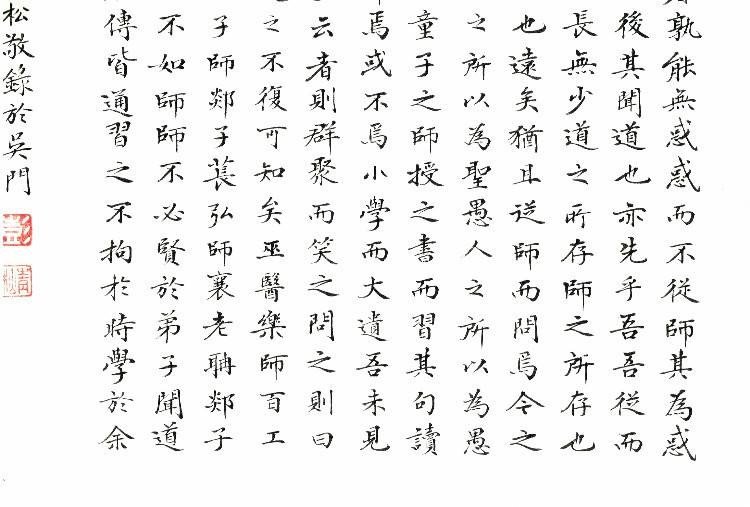 孰能無惑惑而不從師其為惑
後其聞道也亦先乎吾吾從而
長無少道之所存師之所存也
也遠矣猶且從師而問焉今之
之所以為聖愚人之所以為愚
童子之師授之書而習其句讀
焉或不焉小學而大遺吾未見
云者則群聚而笑之問之則曰
之不復可知矣巫醫樂師百工
子師郯子萇弘師襄老聃郯子
不如師師不必賢於弟子聞道
傳皆通習之不拘於時學於余
松敬錄於吳門